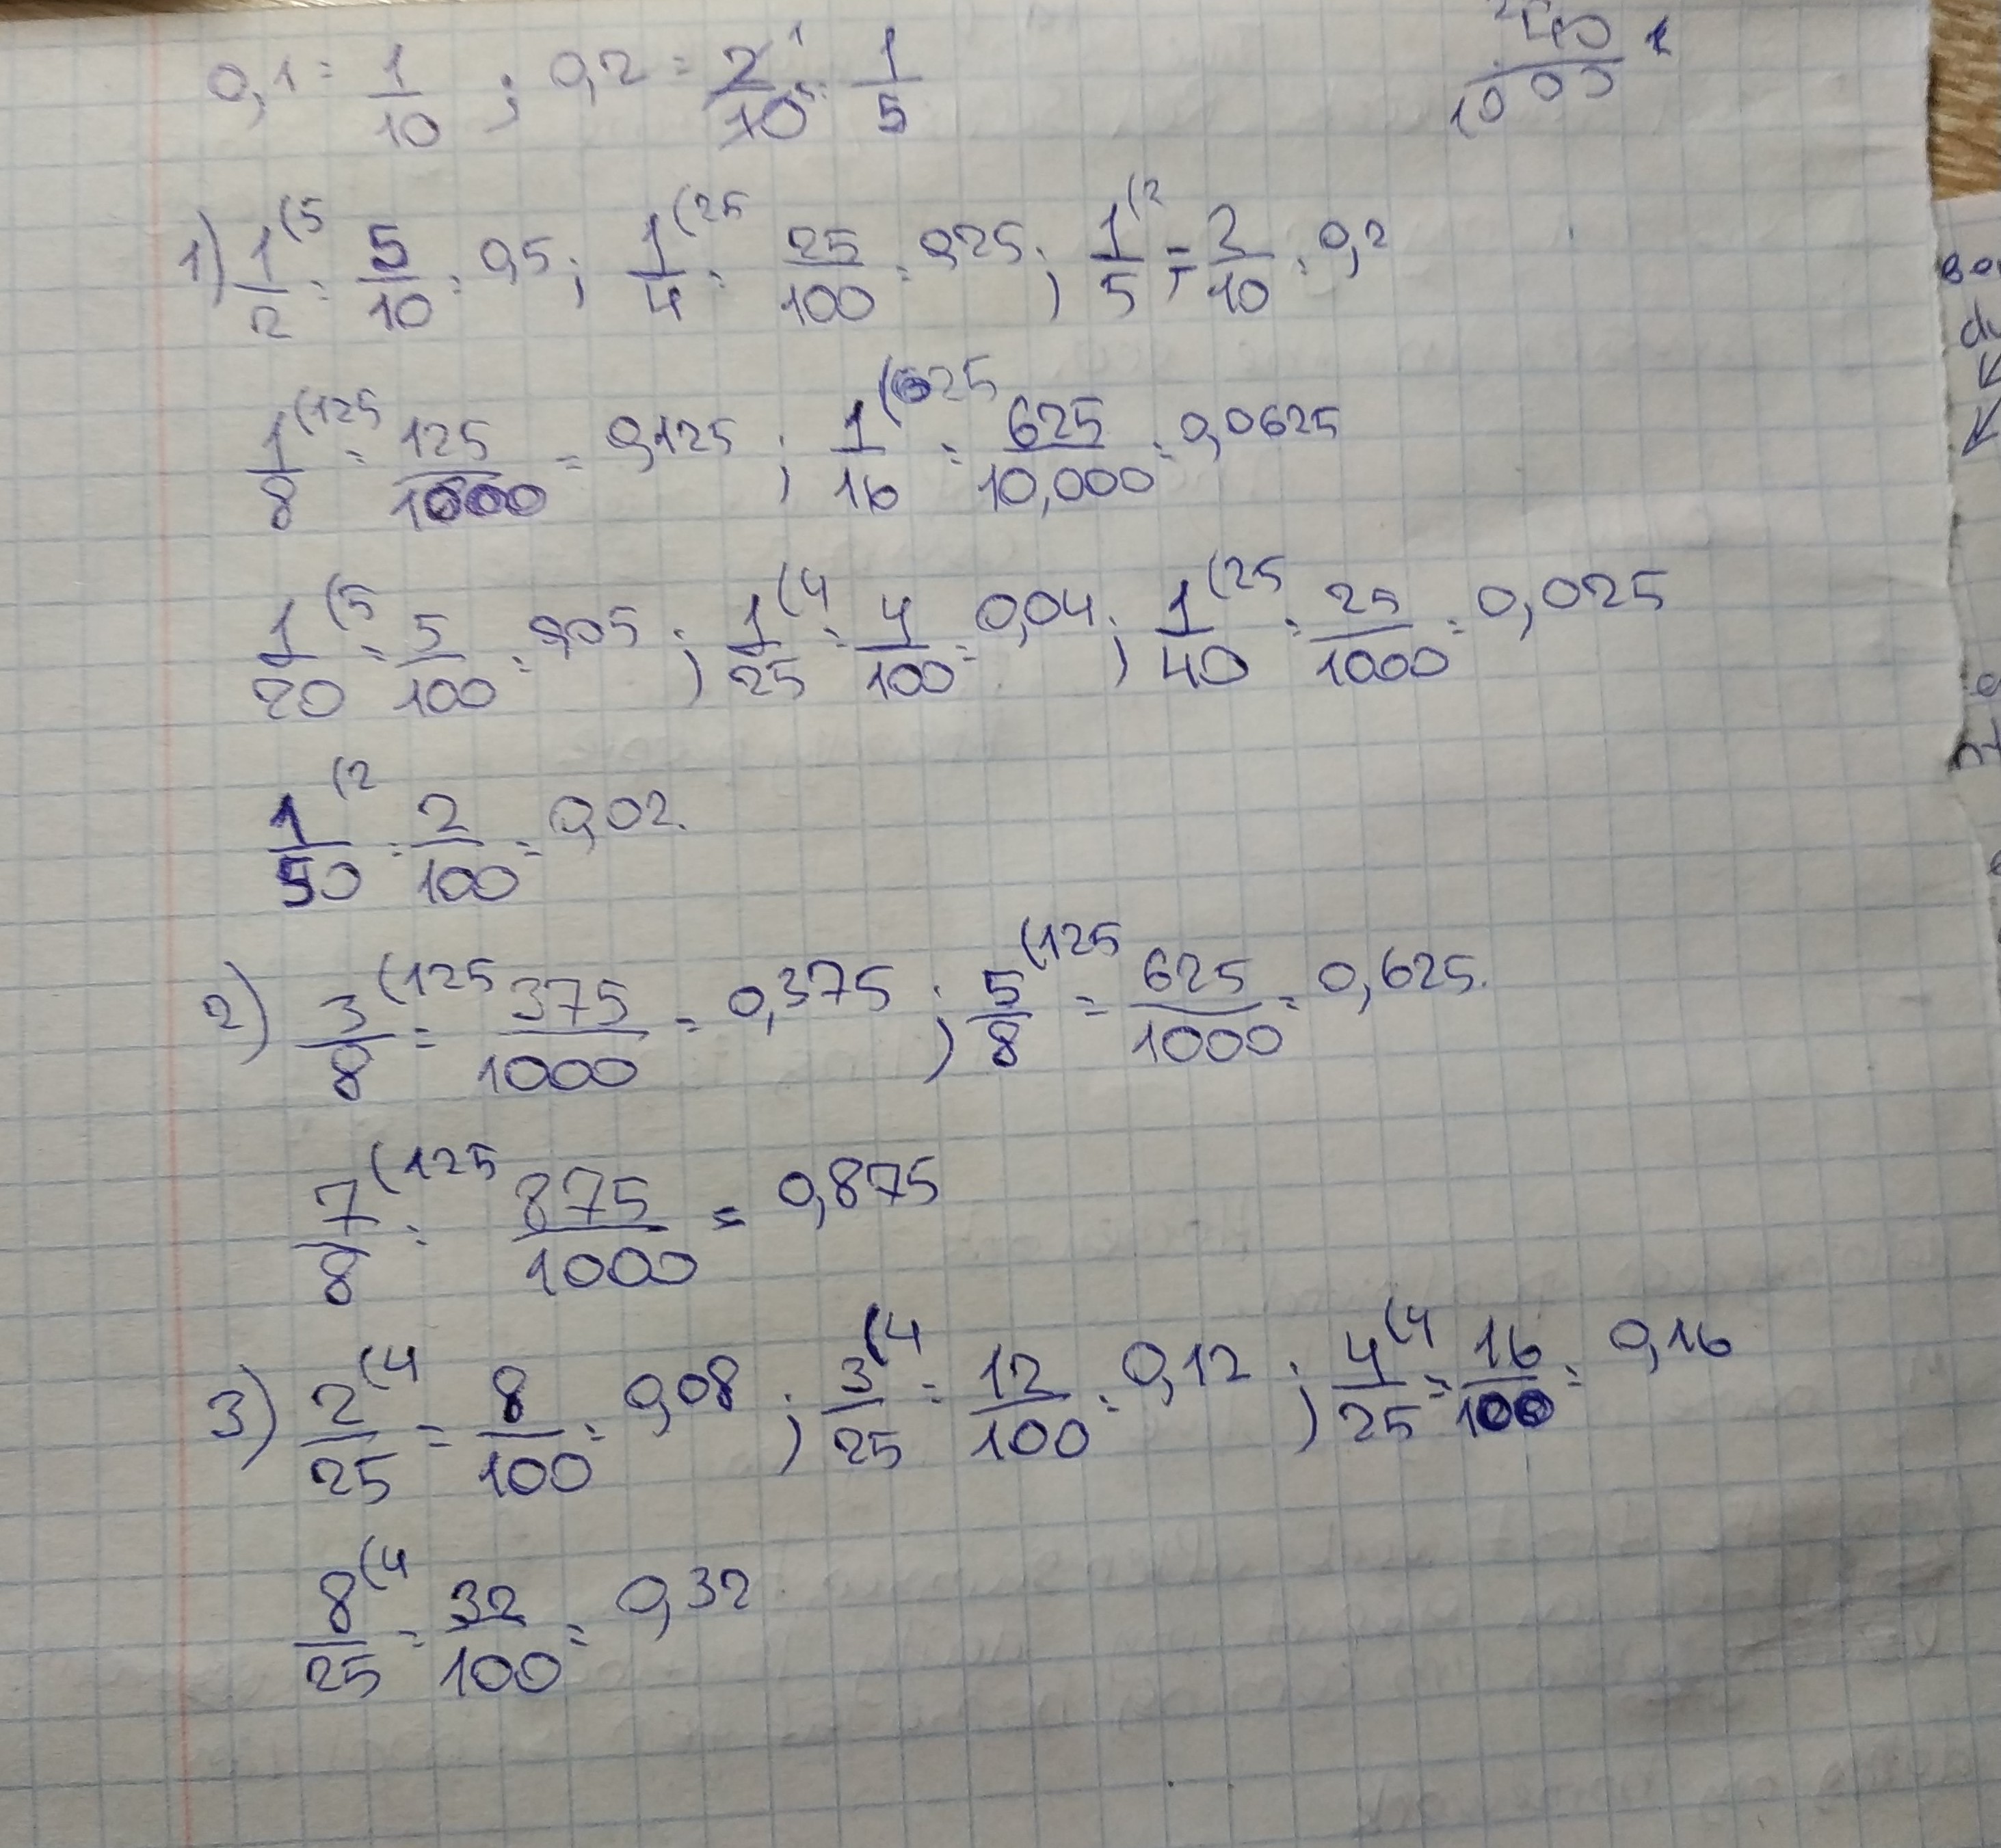 0,1 = 1/10 ; 0,2 = 2/10 = 1/5
40/1000
1) 1/2 (5 = 5/10 = 0,5 ; 1/4 (25 = 25/100 = 0,25 ; 1/5 (2 = 2/10 = 0,2
1/8 (125 = 125/1000 = 0,125 ; 1/16 (625 = 625/10,000 = 0,0625
1/20 (5 = 5/100 = 0,05 ; 1/25 (4 = 4/100 = 0,04 ; 1/40 (25 = 25/1000 = 0,025
1/50 (2 = 2/100 = 0,02.
2) 3/8 (125 = 375/1000 = 0,375 ; 5/8 (125 = 625/1000 = 0,625.
7/8 (125 = 875/1000 = 0,875
3) 2/25 (4 = 8/100 = 0,08 ; 3/25 (4 = 12/100 = 0,12 ; 4/25 (4 = 16/100 = 0,16
8/25 (4 = 32/100 = 0,32